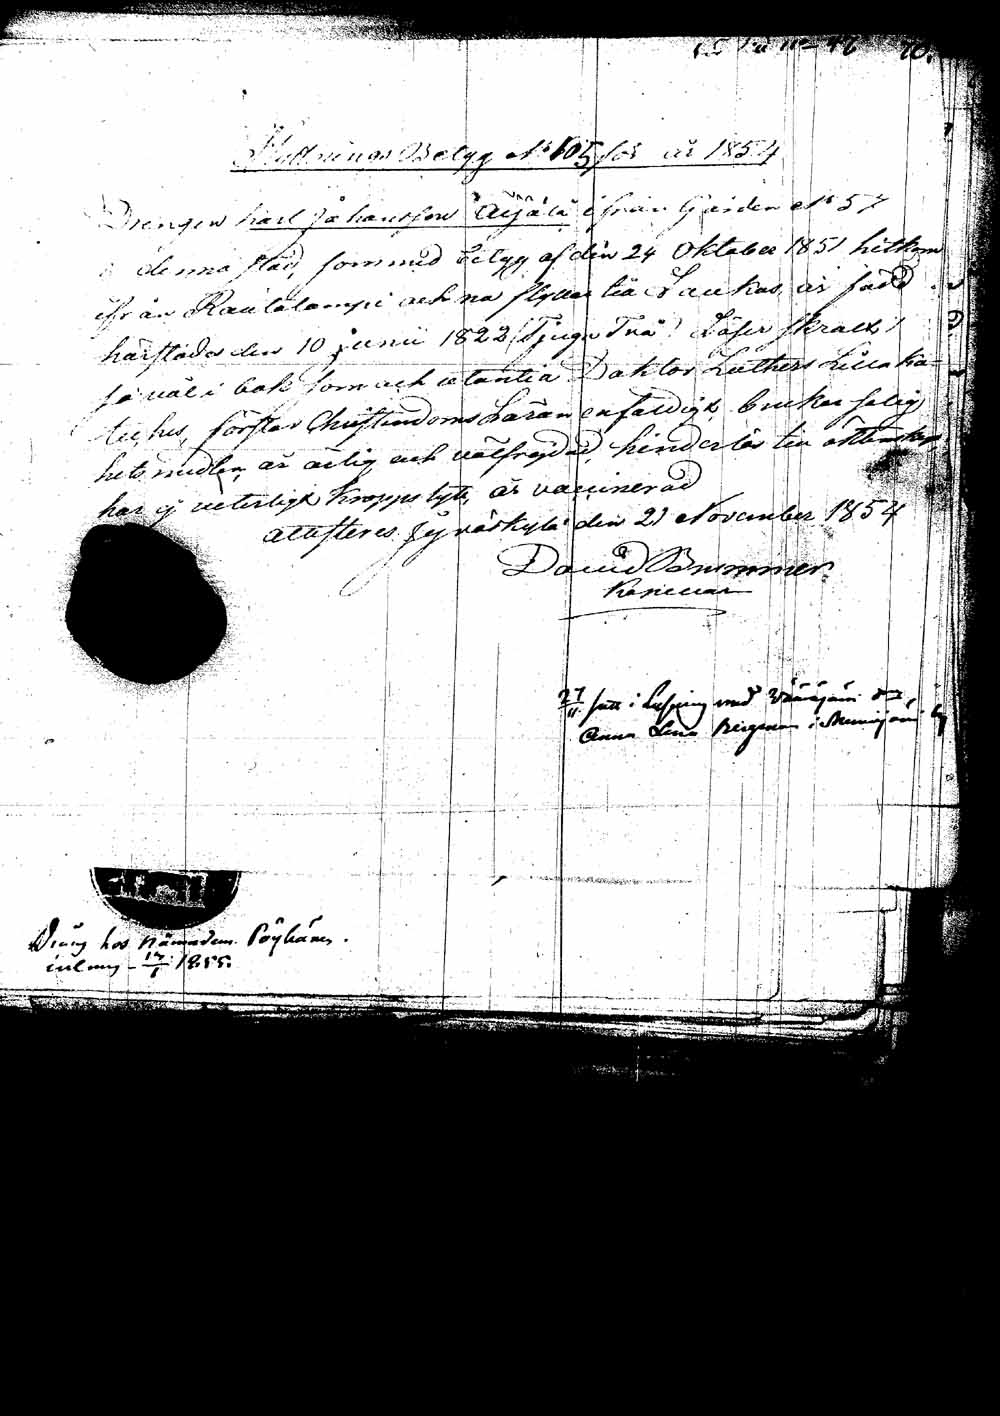 Flyttnings Betyg No 105 för år 1854
Drengen Karl Johansson Äijälä ifrån Gården No 57
i denna stad, som med betyg af den 24 Oktober 1851 hitkom
ifrån Rautalampi och nu flyttar till Laukas, är född
den 10 Junii 1822 (Tjugu Två) Läser
så väl i bok som och utantill Doktor Luthers Lilla Ka-
teches, förstår Christendoms Läran enfaldigt, brukar salig
hets medlen, är ärlig och välfrejdad, hinderlös till äktenskap,
har ej veterligt kropps lyte, är vaccinerad
attesteras Jyväskylä den 21 November 1854
David Brummer
27/11 satt i Lysning med
Anna Lena Bergman i
Dräng hos Nämndem. Pöyhönen.
17/1 1855.